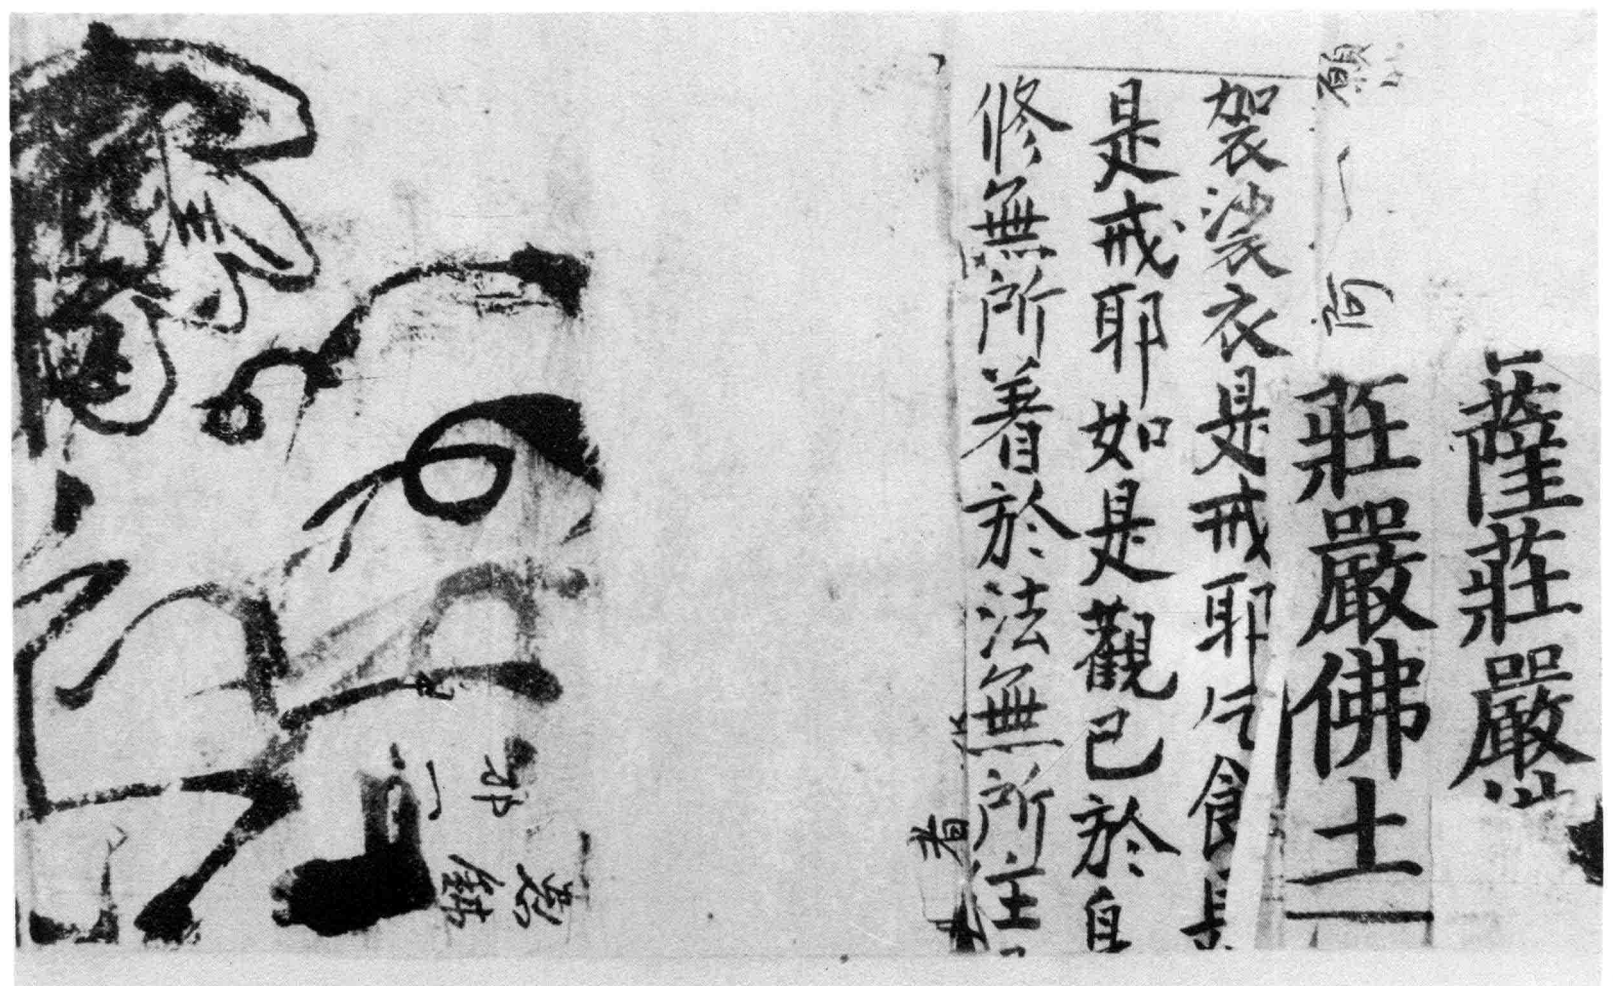 薩莊嚴
莊嚴佛土
願
袈裟衣是戒耶乞食是
是戒耶如是觀已於自
修無所著於法無所住
着